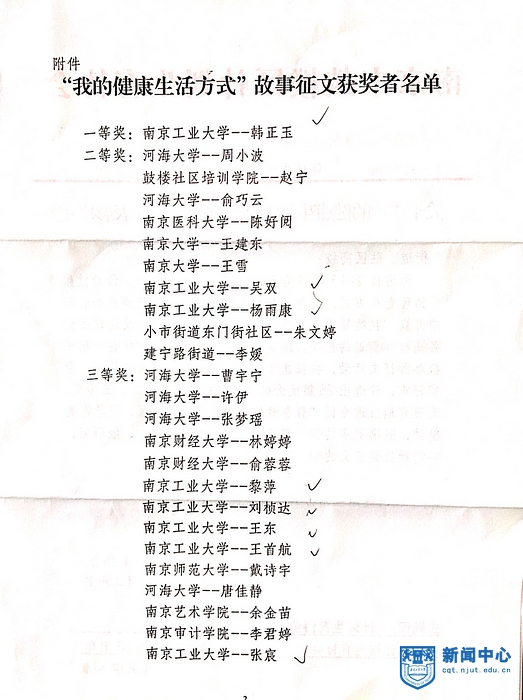 附件
“我的健康生活方式”故事征文获奖者名单
一等奖：南京工业大学--韩正玉
二等奖：河海大学--周小波
鼓楼社区培训学院--赵宁
河海大学--俞巧云
南京医科大学--陈好阅
南京大学--王建东
南京大学--王雪
南京工业大学--吴双
南京工业大学--杨雨康
小市街道东门街社区--朱文婷
建宁路街道--李媛
三等奖：河海大学--曹宇宁
河海大学--许伊
河海大学--张梦瑶
南京财经大学--林婷婷
南京财经大学--俞蓉蓉
南京工业大学--黎萍
南京工业大学--刘桢达
南京工业大学--王东
南京工业大学--王首航
南京师范大学--戴诗宇
河海大学--唐佳静
南京艺术学院--余金苗
南京审计学院--李君婷
南京工业大学--张宸
新闻中心
cqt.njut.edu.cn